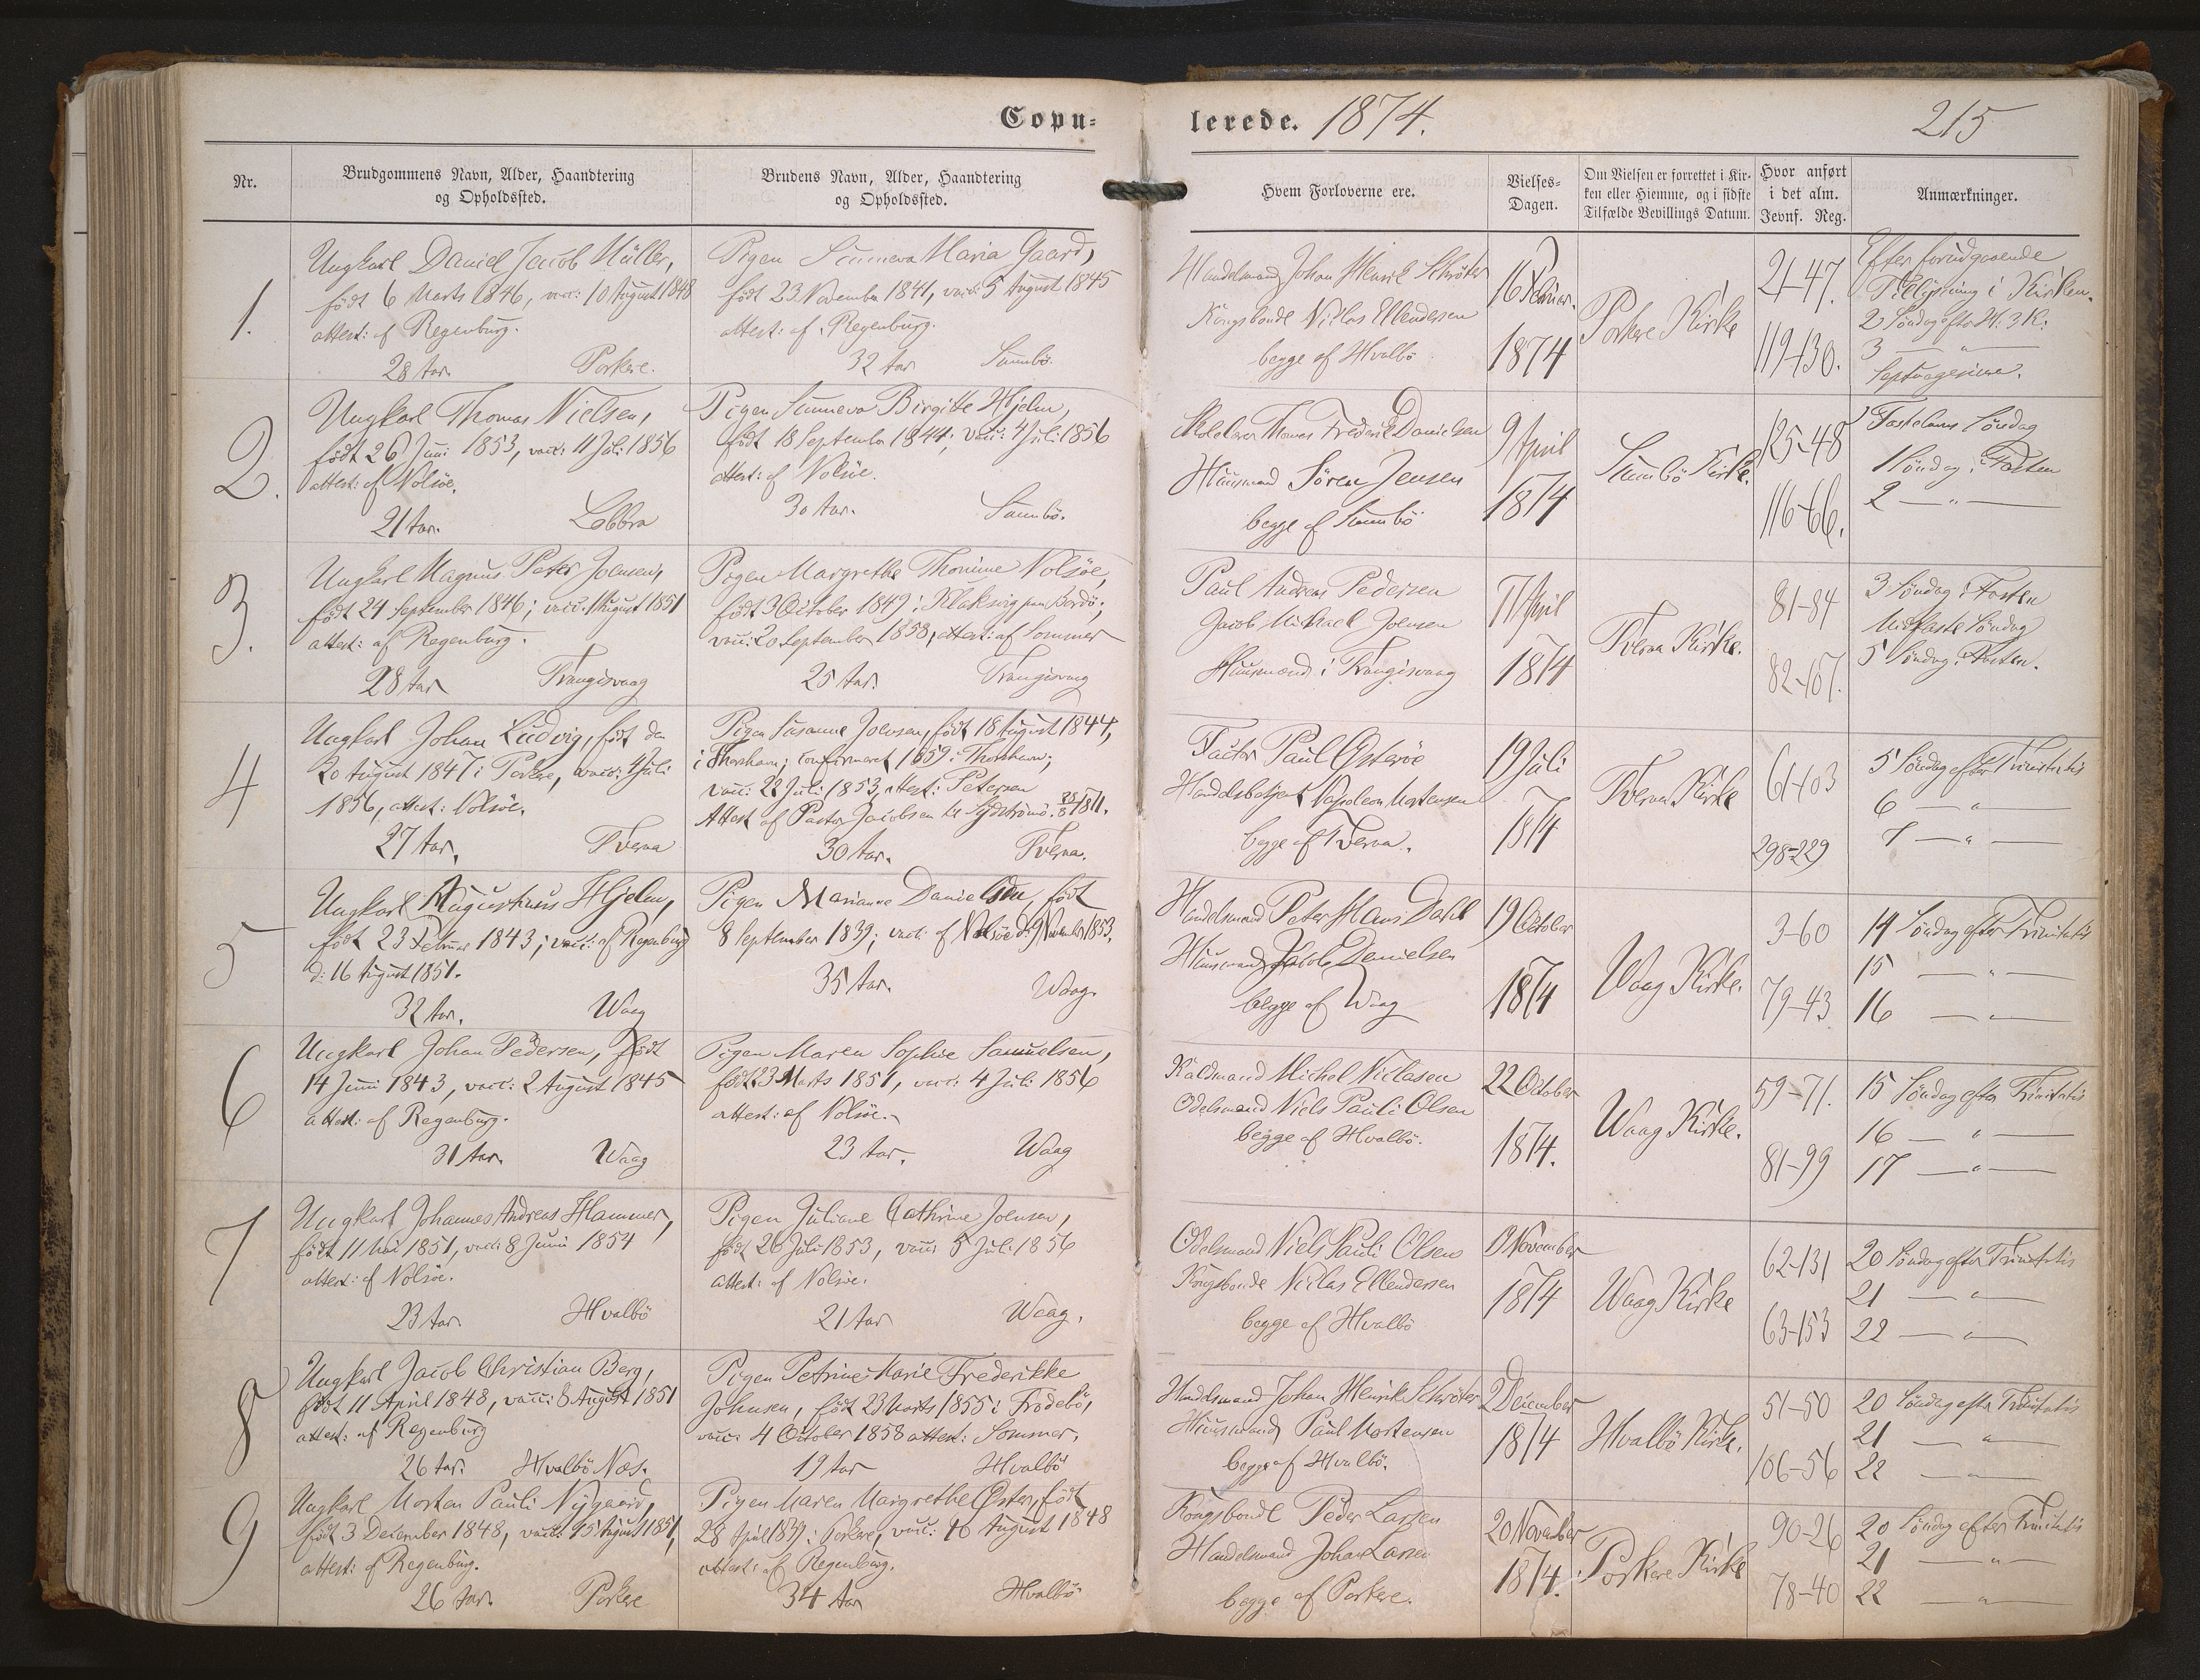 Copu-
lerede. 1874.
215
Nr.
Brudgommens Navn, Alder, Haandtering
og Opholdssted.
Brudens Navn, Alder, Haandtering
og Opholdssted.
Hvem Forloverne ere.
Vielses-
Dagen.
Om Vielsen er forrettet i Kir-
ken eller Hiemme, og i sidste
Tilfælde Bevillings Datum.
Hvor anført
i det alm.
Jevnf. Reg.
Anmærkninger.
1.
Ungkarl Daniel Jacob Müller,
født 6 Marts 1846, vacc: 10 August 1848
attest: af Regenburg.
28 Aar. Porkere.
Pigen Sunneva Maria Gaard,
født 23 November 1841, vacc: 5 August 1845
attest: af Regenburg.
32 Aar Sumbö.
Handelsmand Johan Henrik Schröter
Kongsbonde Niclas Ellendersen
begge af Hvalbö
16 Februar.
1874
Porkere Kirke
21-47.
119-130.
Efter forudgaaende
Tillysning i Kirken.
2 Söndag efter H. 3 K.
3 — " —
Septuagesima.
2.
Ungkarl Thomas Nielsen,
født 26 Juni 1853, vacc: 11 Juli 1856
attest: af Nolsöe.
21 Aar. Lobbra
Pigen Sunneva Birgitte Hjelm,
født 18 September 1844, vacc: 4 Juli 1856
attest: af Nolsöe.
30 Aar. Sumbö.
Skolelærer Thomas Frederik Danielsen
Huusmand Søren Jensen
begge af Sumbö
9 April
1874
Sumbö Kirke.
125-48
116-66.
Fastelavns Söndag
1 Söndag i Fasten
2 — " —
3.
Ungkarl Magnus Peter Joensen,
født 24 September 1846; vacc. August 1851
attest: af Regenburg.
28 Aar Trangisvaag
Pigen Margrethe Thomine Nolsöe,
født 3 October 1849 i Klaksvig paa Bordö;
vacc: 20 September 1858, attest: af Sommer
25 Aar. Trangisvaag
Paul Andreas Pedersen
Jacob Michael Joensen
Huusmænd i Trangisvaag
17 April
1874
Tveraa Kirke.
81-84
82-167.
3 Söndag i Fasten
Midfaste Söndag
5 Söndag i Fasten.
4
Ungkarl Johan Ludvig, født den
20 August 1847 i Porkere, vacc: 4 Juli
1856, attest: Nolsöe.
27 Aar. Tveraa
Pigen Susanne Joensen, født 18 August 1844,
i Thorshavn; confirmeret 1859 i Thorshavn;
vacc: 22 Juli 1853, attest: Petersen
Attest af Pastor Jacobsen til Sydströmö
30 Aar. Tveraa.
Factor Paul Österöe
Handelsbetjent Napoleon Mortensen
begge af Tveraa.
19 Juli
1874
Tveraa Kirke
61-103
298-229
5 Söndag efter Trinitatis
6 — " —
7 — " —
5
Ungkarl Augustinus Hjelm,
født 23 Februar 1843; vacc: af Regenburg
d: 16 August 1851.
32 Aar. Waag
Pigen Marianne Danielsen, født
8 September 1839; vacc: af Nolsöe d: 9 November 1853.
35 Aar. Waag.
Handelsmand Peter Hans Dahl
Huusmand Jacob Danielsen
begge af Waag
19 October
1874
Waag Kirke.
3-60
79-43
14 Söndag efter Trinitatis
15 — " —
16 — " —
6
Ungkarl Johan Pedersen, født
14 Juni 1843, vacc: 2 August 1845
attest: af Regenburg.
31 Aar. Waag
Pigen Maren Sophie Samuelsen,
født 23 Marts 1851, vacc: 4 Juli 1856
attest: af Nolsöe.
23 Aar. Waag
Michel Niclasen
Odelsmand Niels Pauli Olsen
begge af Hvalbö.
22 October
1874.
Waag Kirke.
59-71.
81-99
15 Söndag efter Trinitatis
16 — " —
17 — " —
7
Ungkarl Johannes Andreas Hammer,
født 11 Mai 1851, vacc: 8 Juni 1854
attest: af Nolsöe.
23 Aar. Hvalbö
Pigen Juliane Cathrine Joensen,
født 26 Juli 1853, vacc: 5 Juli 1856
attest: af Nolsöe.
21 Aar Waag.
Odelsmand Niels Pauli Olsen
Kongsbonde Niclas Ellendersen
begge af Hvalbö
November
1874
Waag Kirke
62-131
63-153
20 Söndag efter Trinitatis
21 — " —
22 — " —
8
Ungkarl Jacob Christian Berg,
født 11 April 1848, vacc: 8 August 1851
attest: af Regenburg
26 Aar. Hvalbö Næs.
Pigen Petrine Marie Frederikke
Johnsen, født 23 Marts 1855 i Frodebö,
vacc: 4 October 1858 attest: Sommer.
19 Aar Hvalbö
Handelsmand Johan Henrik Schröter
Huusmand Paul Mortensen
begge af Hvalbö.
2 December
1874
Hvalbö Kirke.
51-50
106-56
20 Söndag efter Trinitatis
21 — " —
22 — " —
9
Ungkarl Morten Pauli Nygaard,
født 3 December 1848, vacc: 15 August 1851,
attest: af Regenburg.
26 Aar. Porkere
Pigen Maren Margrethe Öster, født
28 April 1839 i Porkere, vacc: 10 August 1848
attest: af Regenburg.
34 Aar Hvalbö
Kongsbonde Peder Larsen
Handelsmand Johan Larsen
begge af Porkere.
20 November
1874.
Porkere Kirke
90-26
78-40
20 Söndag efter Trinitatis
21 — " —
22 — " —